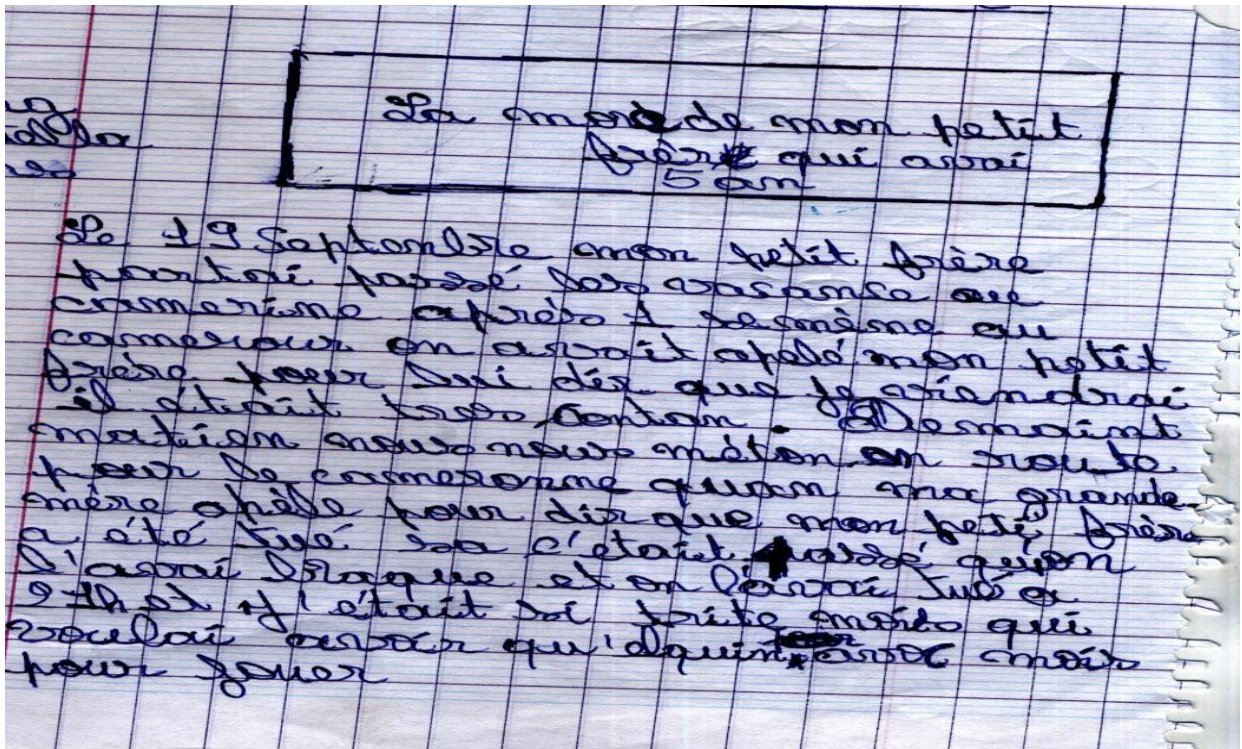 La mord de mon petit
frère qui avai
5 an
Le 19 Septenbre mon petit frère
partai passé les vacanse au
camerune aprés 1 semène au
cameroun on avait apelé mon petit
frère pour lui dir que je viendrai
il était tres contan. Demaint
matien nous nous méton en route
pour le cameronne quan ma grande
mère apèle pour dir que mon peti frère
a été tué sa c'était passé quon
l'avai braque et on l'avai tué a
9 1h et j'était si triste moi qui
voulai avoir qu'elquin avec moir
pour jouer